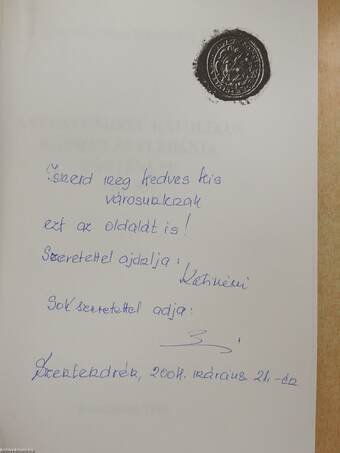 Ismerd meg kedves kis
városunknak
ezt az oldalát is!
Szeretettel ajálja:
Sok szeretettel adja:
Szentendrén, 2004. március 21.-én